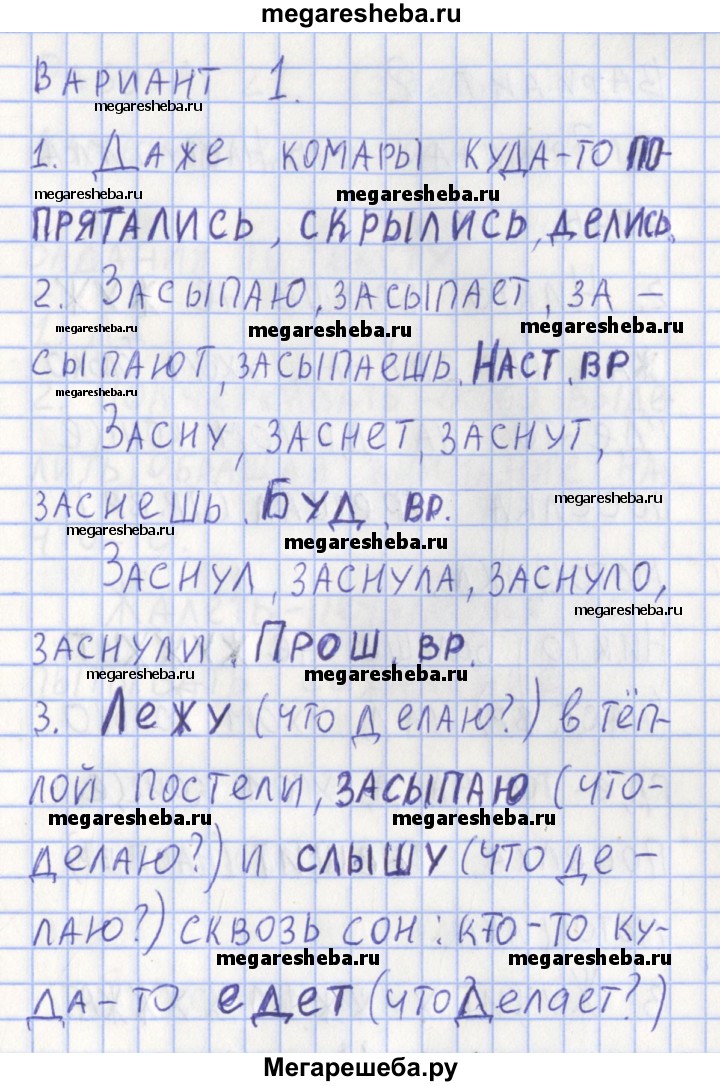 megaresheba.ru
ВАРИАНТ 1.
megaresheba.ru
1. ДАЖЕ КОМАРЫ КУДА-ТО ПО-
megaresheba.ru megaresheba.ru
ПРЯТАЛИСЬ, СКРЫЛИСЬ, ДЕЛИСЬ.
2. ЗАСЫПАЮ, ЗАСЫПАЕТ, ЗА-
megaresheba.ru megaresheba.ru megaresheba.ru
СЫПАЮТ, ЗАСЫПАЕШЬ. НАСТ. ВР
megaresheba.ru
ЗАСНУ, ЗАСНЕТ, ЗАСНУТ,
ЗАСНЕШЬ. БУД. ВР.
megaresheba.ru megaresheba.ru megaresheba.ru
ЗАСНУЛ, ЗАСНУЛА, ЗАСНУЛО,
megaresheba.ru
ЗАСНУЛИ. ПРОШ. ВР.
megaresheba.ru megaresheba.ru
3. ЛЕЖУ (ЧТО ДЕЛАЮ?) В ТЁП-
ЛОЙ ПОСТЕЛИ, ЗАСЫПАЮ (ЧТО-
megaresheba.ru megaresheba.ru
ДЕЛАЮ?) И СЛЫШУ (ЧТО ДЕ-
ЛАЮ?) СКВОЗЬ СОН: КТО-ТО КУ-
megaresheba.ru megaresheba.ru
ДА-ТО ЕДЕТ (ЧТО ДЕЛАЕТ?)
Мегарешеба.ру